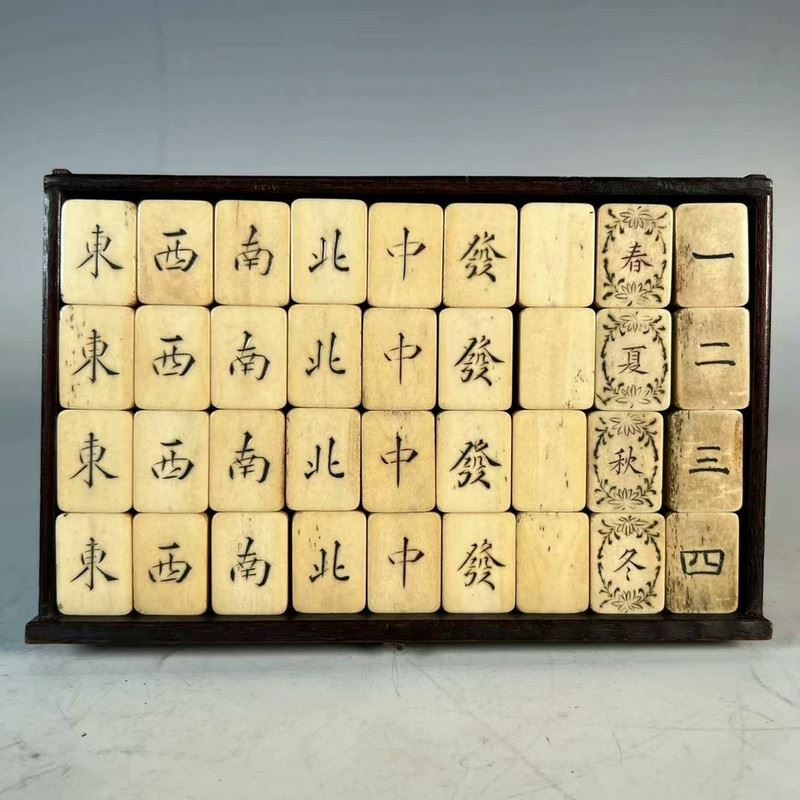 東 西 南 北 中 發 春 一
東 西 南 北 中 發 夏 二
東 西 南 北 中 發 秋 三
東 西 南 北 中 發 冬 四